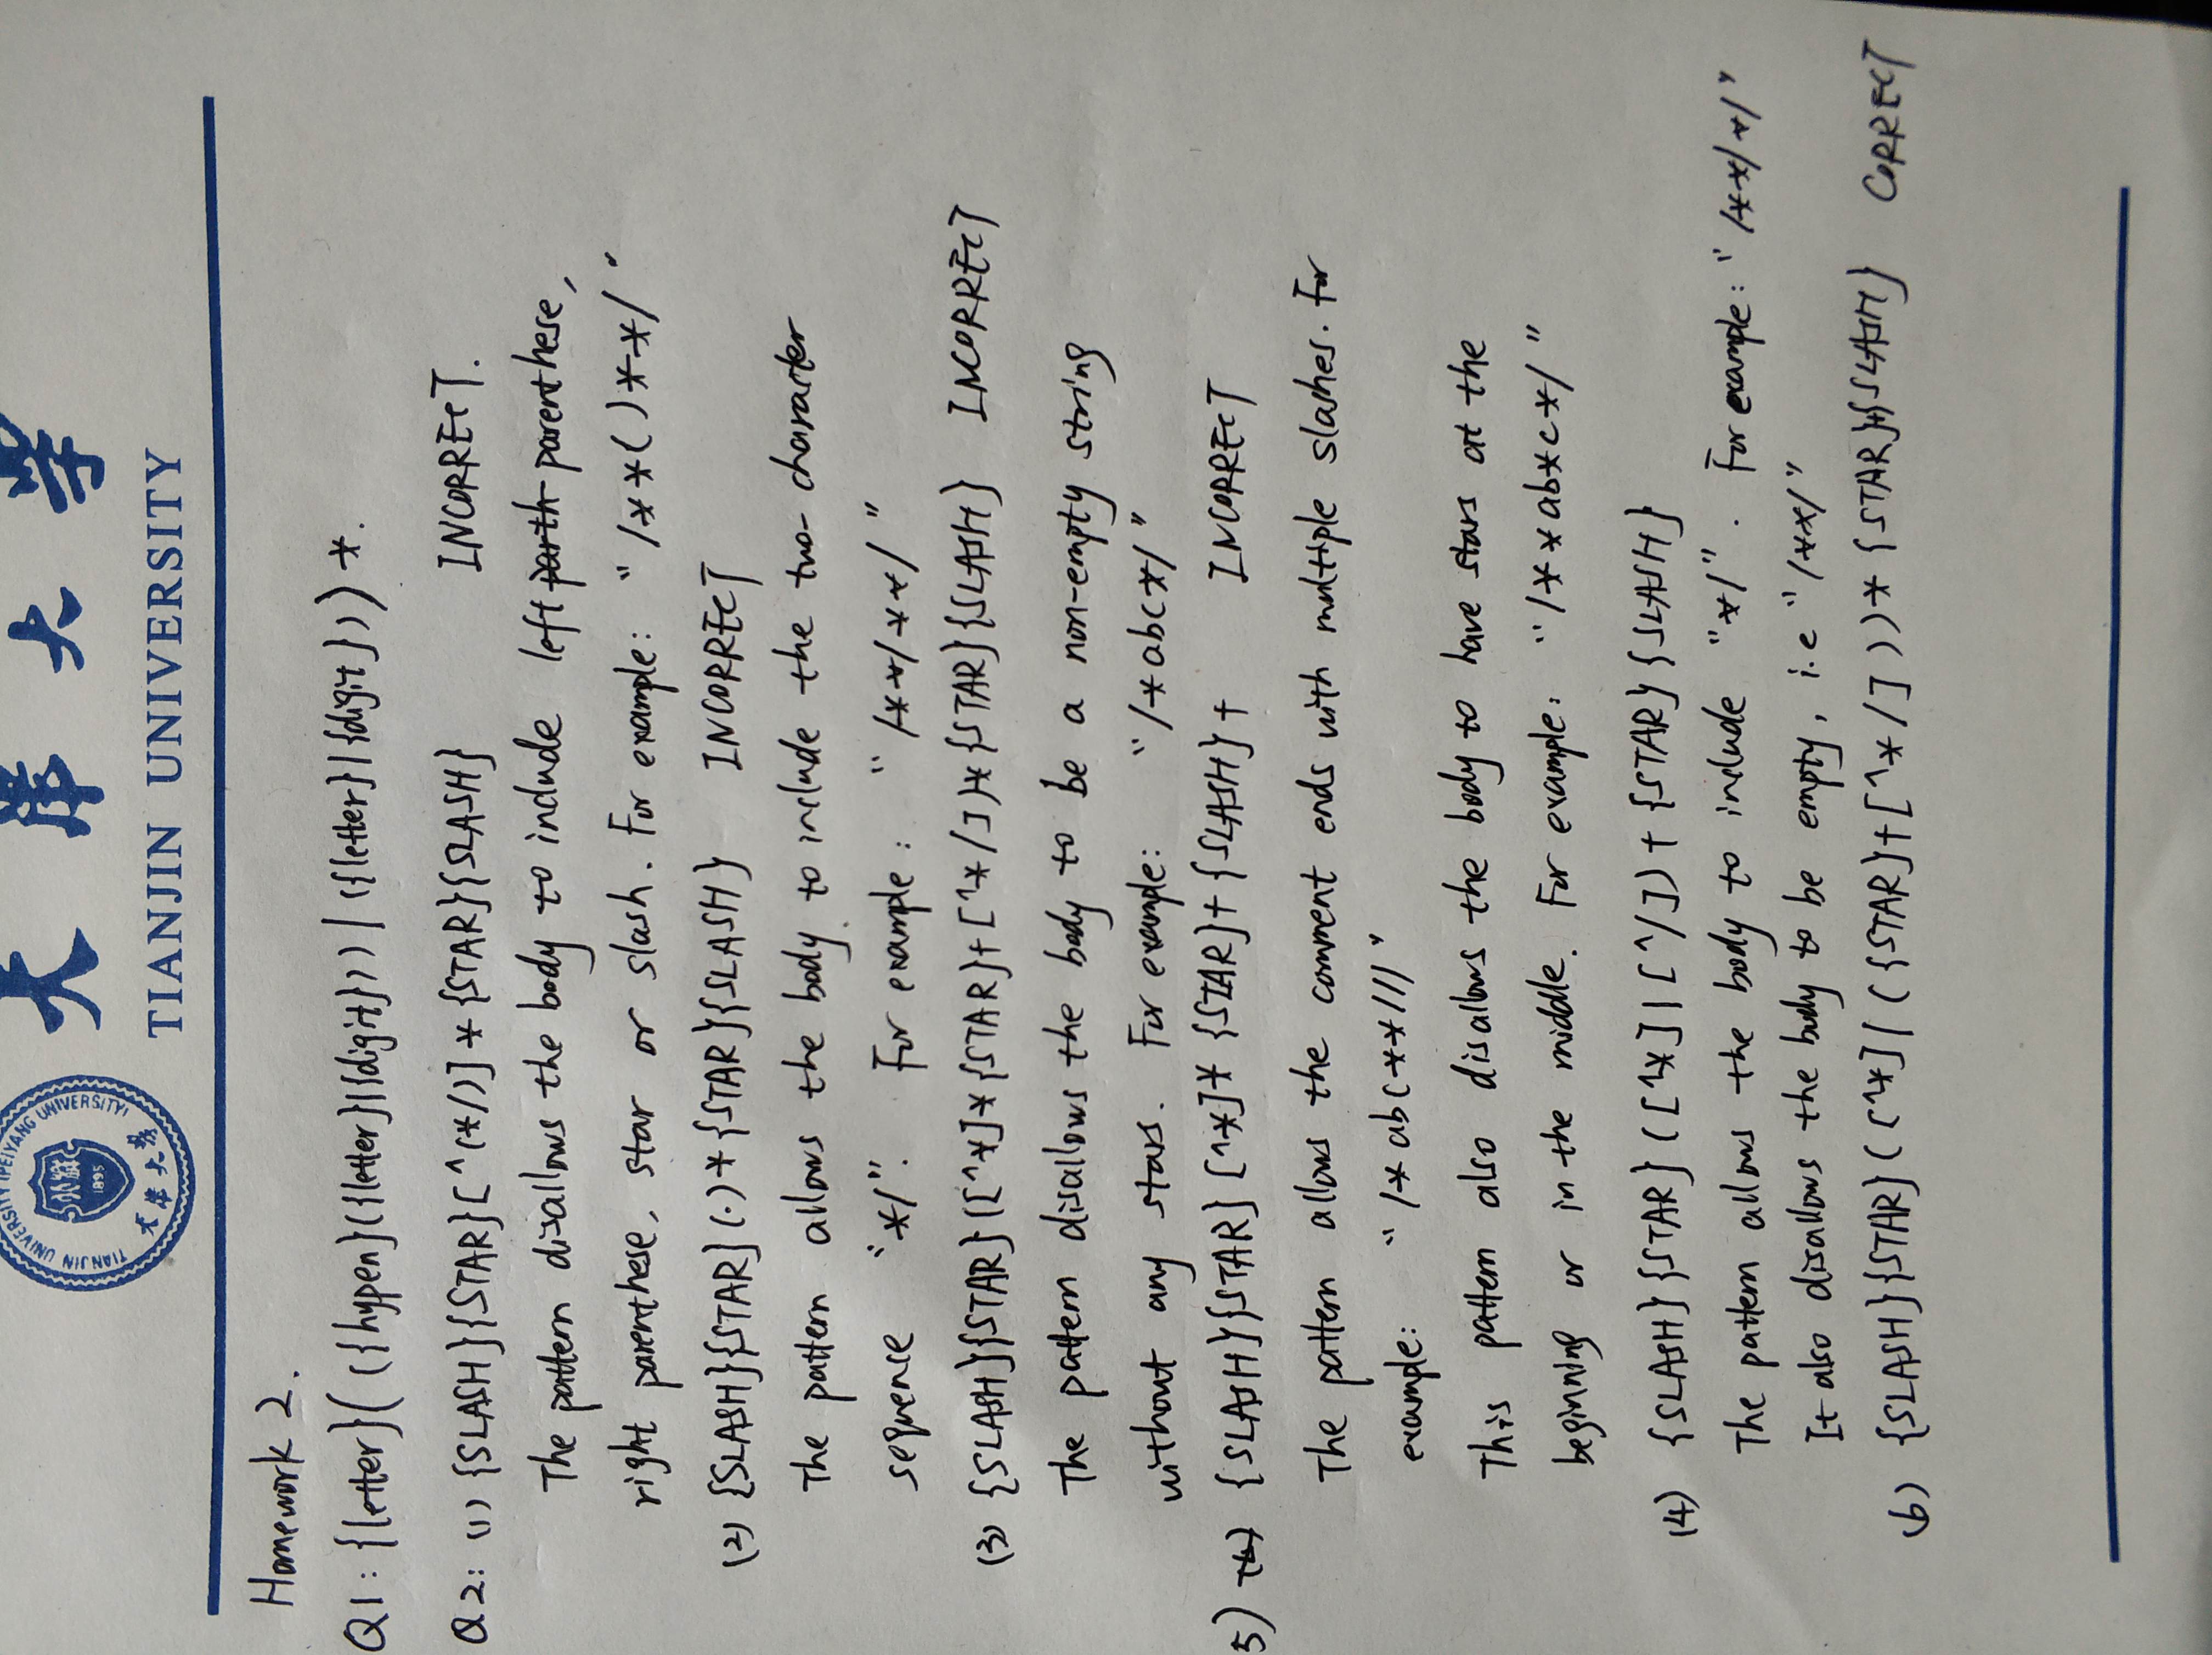 TIANJIN UNIVERSITY (PEIYANG UNIVERSITY)
北洋
1895
天津大学
天津大学
TIANJIN UNIVERSITY
Homework 2.
Q1: {letter}(({hypen}({letter}|{digit}))|({letter}|{digit}))*.
Q2: (1) {SLASH}{STAR}[^(*/)]*{STAR}{SLASH} INCORRECT.
The pattern disallows the body to include left parth parenthese,
right parenthese, star or slash. For example: "/**()**/"
(2) {SLASH}{STAR}(.)*{STAR}{SLASH} INCORRECT
The pattern allows the body to include the two-character
sequence "*/". For example: "/**/**/"
(3) {SLASH}{STAR}([^*]*{STAR}+[^*/])*{STAR}{SLASH} INCORRECT
The pattern disallows the body to be a non-empty string
without any stars. For example: "/*abc*/"
5) (4) {SLASH}{STAR}[^*]*{STAR}+{SLASH}+ INCORRECT
The pattern allows the comment ends with multiple slashes. For
example: "/*abc**///"
This pattern also disallows the body to have stars at the
beginning or in the middle. For example: "/**ab*c*/"
(4) {SLASH}{STAR}([^*]|[^/])+{STAR}{SLASH}
The pattern allows the body to include "*/". For example: "/**/*/"
It also disallows the body to be empty, i.e "/**/"
(6) {SLASH}{STAR}([^*]|({STAR}+[^*/]))*{STAR}+{SLASH} CORRECT